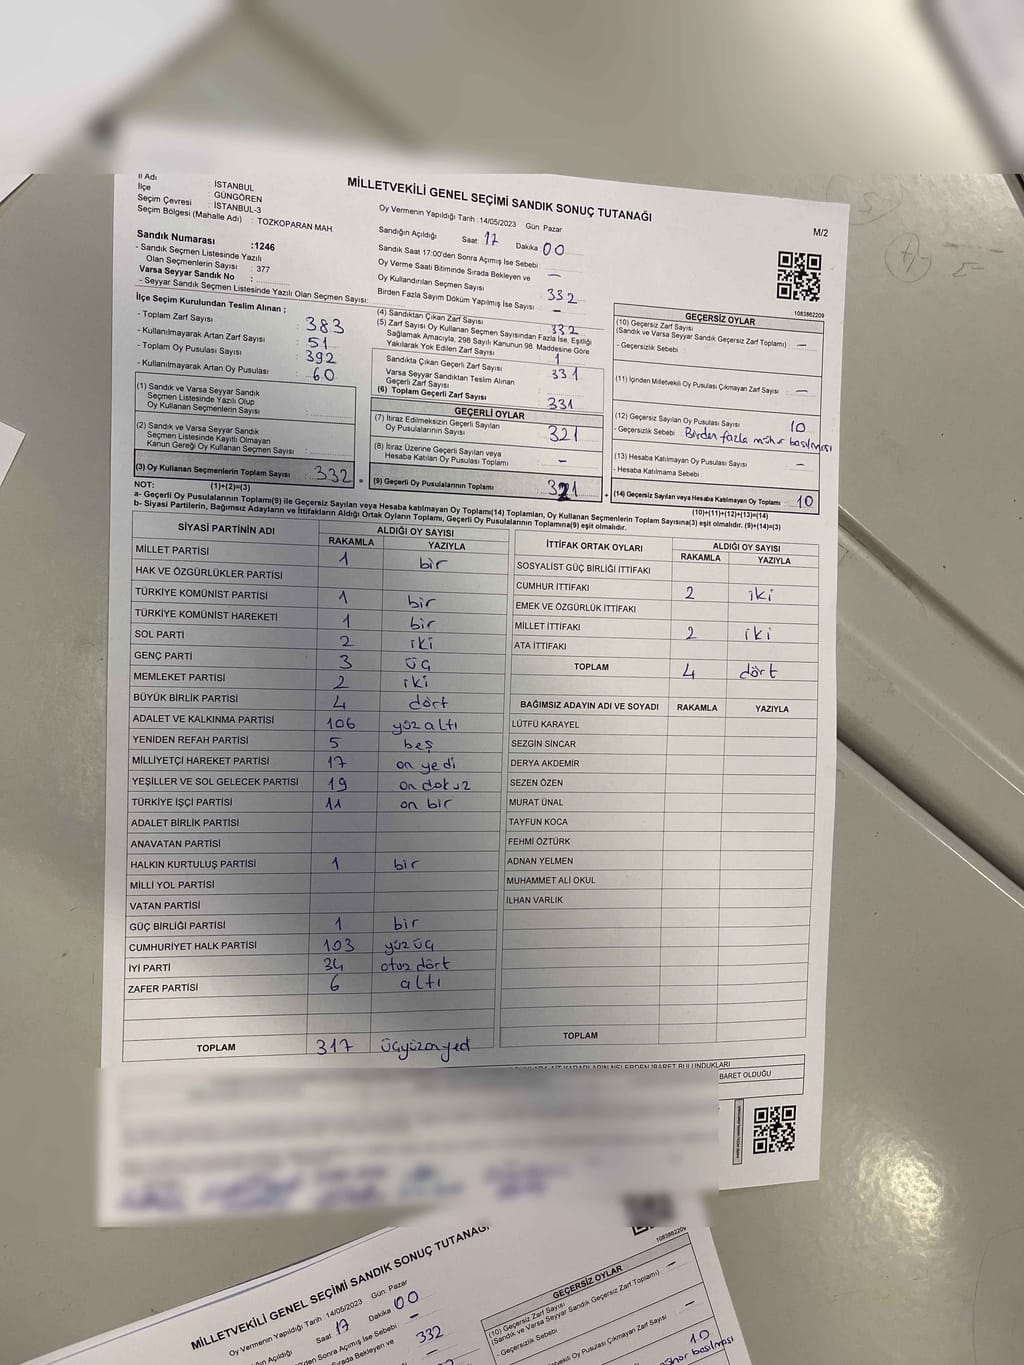 İl Adı : İSTANBUL
İlçe : GÜNGÖREN
Seçim Çevresi : İSTANBUL-3
Seçim Bölgesi (Mahalle Adı) : TOZKOPARAN MAH.
MİLLETVEKİLİ GENEL SEÇİMİ SANDIK SONUÇ TUTANAĞI
M/2
Oy Vermenin Yapıldığı Tarih : 14/05/2023 Gün: Pazar
Sandığın Açıldığı Saat: 17 Dakika: 00
Sandık Saat 17:00'den Sonra Açılmış İse Sebebi : –
Oy Verme Saati Bitiminde Sırada Bekleyen ve
Oy Kullandırılan Seçmen Sayısı : 332
Birden Fazla Sayım Döküm Yapılmış İse Sayısı : –
1083862209
Sandık Numarası :1246
- Sandık Seçmen Listesinde Yazılı
Olan Seçmenlerin Sayısı : 377
Varsa Seyyar Sandık No :
- Seyyar Sandık Seçmen Listesinde Yazılı Olan Seçmen Sayısı:
İlçe Seçim Kurulundan Teslim Alınan ;
- Toplam Zarf Sayısı : 383
- Kullanılmayarak Artan Zarf Sayısı : 51
- Toplam Oy Pusulası Sayısı : 392
- Kullanılmayarak Artan Oy Pusulası : 60
(1) Sandık ve Varsa Seyyar Sandık
Seçmen Listesinde Yazılı Olup
Oy Kullanan Seçmenlerin Sayısı :
(2) Sandık ve Varsa Seyyar Sandık
Seçmen Listesinde Kayıtlı Olmayan
Kanun Gereği Oy Kullanan Seçmen Sayısı :
(3) Oy Kullanan Seçmenlerin Toplam Sayısı : 332
(4) Sandıktan Çıkan Zarf Sayısı 332
(5) Zarf Sayısı Oy Kullanan Seçmen Sayısından Fazla İse, Eşitliği
Sağlamak Amacıyla, 298 Sayılı Kanunun 98. Maddesine Göre
Yakılarak Yok Edilen Zarf Sayısı 1
Sandıkta Çıkan Geçerli Zarf Sayısı 331
Varsa Seyyar Sandıktan Teslim Alınan
Geçerli Zarf Sayısı
(6) Toplam Geçerli Zarf Sayısı 331
GEÇERLİ OYLAR
(7) İtiraz Edilmeksizin Geçerli Sayılan
Oy Pusulalarının Sayısı 321
(8) İtiraz Üzerine Geçerli Sayılan veya
Hesaba Katılan Oy Pusulası Toplamı –
(9) Geçerli Oy Pusulalarının Toplamı 321
GEÇERSİZ OYLAR
(10) Geçersiz Zarf Sayısı
(Sandık ve Varsa Seyyar Sandık Geçersiz Zarf Toplamı) –
- Geçersizlik Sebebi
(11) İçinden Milletvekili Oy Pusulası Çıkmayan Zarf Sayısı –
(12) Geçersiz Sayılan Oy Pusulası Sayısı 10
- Geçersizlik Sebebi : Birden fazla mühür basılması
(13) Hesaba Katılmayan Oy Pusulası Sayısı –
- Hesaba Katılmama Sebebi :
(14) Geçersiz Sayılan veya Hesaba Katılmayan Oy Toplamı 10
NOT: (1)+(2)=(3)
(10)+(11)+(12)+(13)=(14)
a- Geçerli Oy Pusulalarının Toplamı(9) ile Geçersiz Sayılan veya Hesaba katılmayan Oy Toplamı(14) Toplamları, Oy Kullanan Seçmenlerin Toplam Sayısına(3) eşit olmalıdır. (9)+(14)=(3)
b- Siyasi Partilerin, Bağımsız Adayların ve İttifakların Aldığı Ortak Oyların Toplamı, Geçerli Oy Pusulalarının Toplamına(9) eşit olmalıdır.
SİYASİ PARTİNİN ADI ALDIĞI OY SAYISI
RAKAMLA YAZIYLA
MİLLET PARTİSİ 1 bir
HAK VE ÖZGÜRLÜKLER PARTİSİ
TÜRKİYE KOMÜNİST PARTİSİ 1 bir
TÜRKİYE KOMÜNİST HAREKETİ 1 bir
SOL PARTİ 2 iki
GENÇ PARTİ 3 üç
MEMLEKET PARTİSİ 2 iki
BÜYÜK BİRLİK PARTİSİ 4 dört
ADALET VE KALKINMA PARTİSİ 106 yüz altı
YENİDEN REFAH PARTİSİ 5 beş
MİLLİYETÇİ HAREKET PARTİSİ 17 on yedi
YEŞİLLER VE SOL GELECEK PARTİSİ 19 on dokuz
TÜRKİYE İŞÇİ PARTİSİ 11 on bir
ADALET BİRLİK PARTİSİ
ANAVATAN PARTİSİ
HALKIN KURTULUŞ PARTİSİ 1 bir
MİLLİ YOL PARTİSİ
VATAN PARTİSİ
GÜÇ BİRLİĞİ PARTİSİ 1 bir
CUMHURİYET HALK PARTİSİ 103 yüz üç
İYİ PARTİ 34 otuz dört
ZAFER PARTİSİ 6 altı
TOPLAM 317 üçyüzonyedi
İTTİFAK ORTAK OYLARI ALDIĞI OY SAYISI
RAKAMLA YAZIYLA
SOSYALİST GÜÇ BİRLİĞİ İTTİFAKI
CUMHUR İTTİFAKI 2 iki
EMEK VE ÖZGÜRLÜK İTTİFAKI
MİLLET İTTİFAKI 2 iki
ATA İTTİFAKI
TOPLAM 4 dört
BAĞIMSIZ ADAYIN ADI VE SOYADI RAKAMLA YAZIYLA
LÜTFÜ KARAYEL
SEZGİN SİNCAR
DERYA AKDEMİR
SEZEN ÖZEN
MURAT ÜNAL
TAYFUN KOCA
FEHMİ ÖZTÜRK
ADNAN YELMEN
MUHAMMET ALİ OKUL
İLHAN VARLIK
TOPLAM
BARET OLDUĞU
MİLLETVEKİLİ GENEL SEÇİMİ SANDIK SONUÇ TUTANAĞI
1083862209
Oy Vermenin Yapıldığı Tarih : 14/05/2023 Gün: Pazar
Saat 17 Dakika 00
Sonra Açılmış İse Sebebi : –
Sırada Bekleyen ve
332
GEÇERSİZ OYLAR
(10) Geçersiz Zarf Sayısı
(Sandık ve Varsa Seyyar Sandık Geçersiz Zarf Toplamı) –
- Geçersizlik Sebebi
Oy Pusulası Çıkmayan Zarf Sayısı –
10
mühür basılması